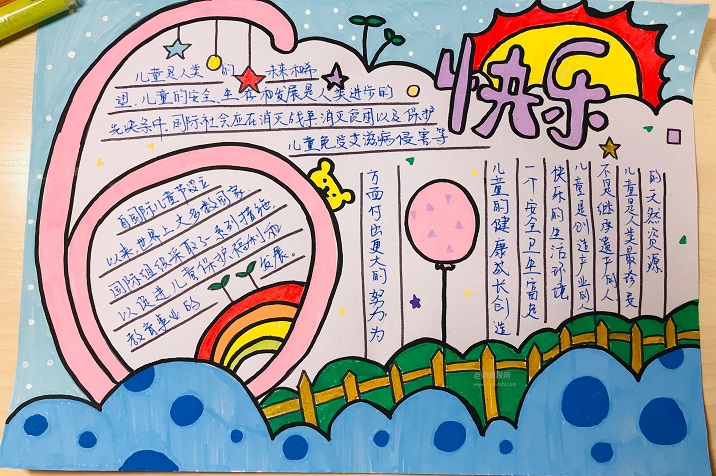 快乐
儿童是人类的未来和希
望，儿童的安全、生存和发展是人类进步的
先决条件。国际社会应在消灭战争消灭贫困以及保护
儿童免受艾滋病侵害等
方面付出更大的努力为
儿童的健康成长创造
一个安全卫生富足
快乐的生活环境
儿童是创造产业的人
不是继承遗产的人
儿童是人类最珍贵
的天然资源
自国际儿童节设立
以来，世界上大多数国家
国际组织采取了一系列措施
以促进儿童保护、福利和
教育事业的发展。